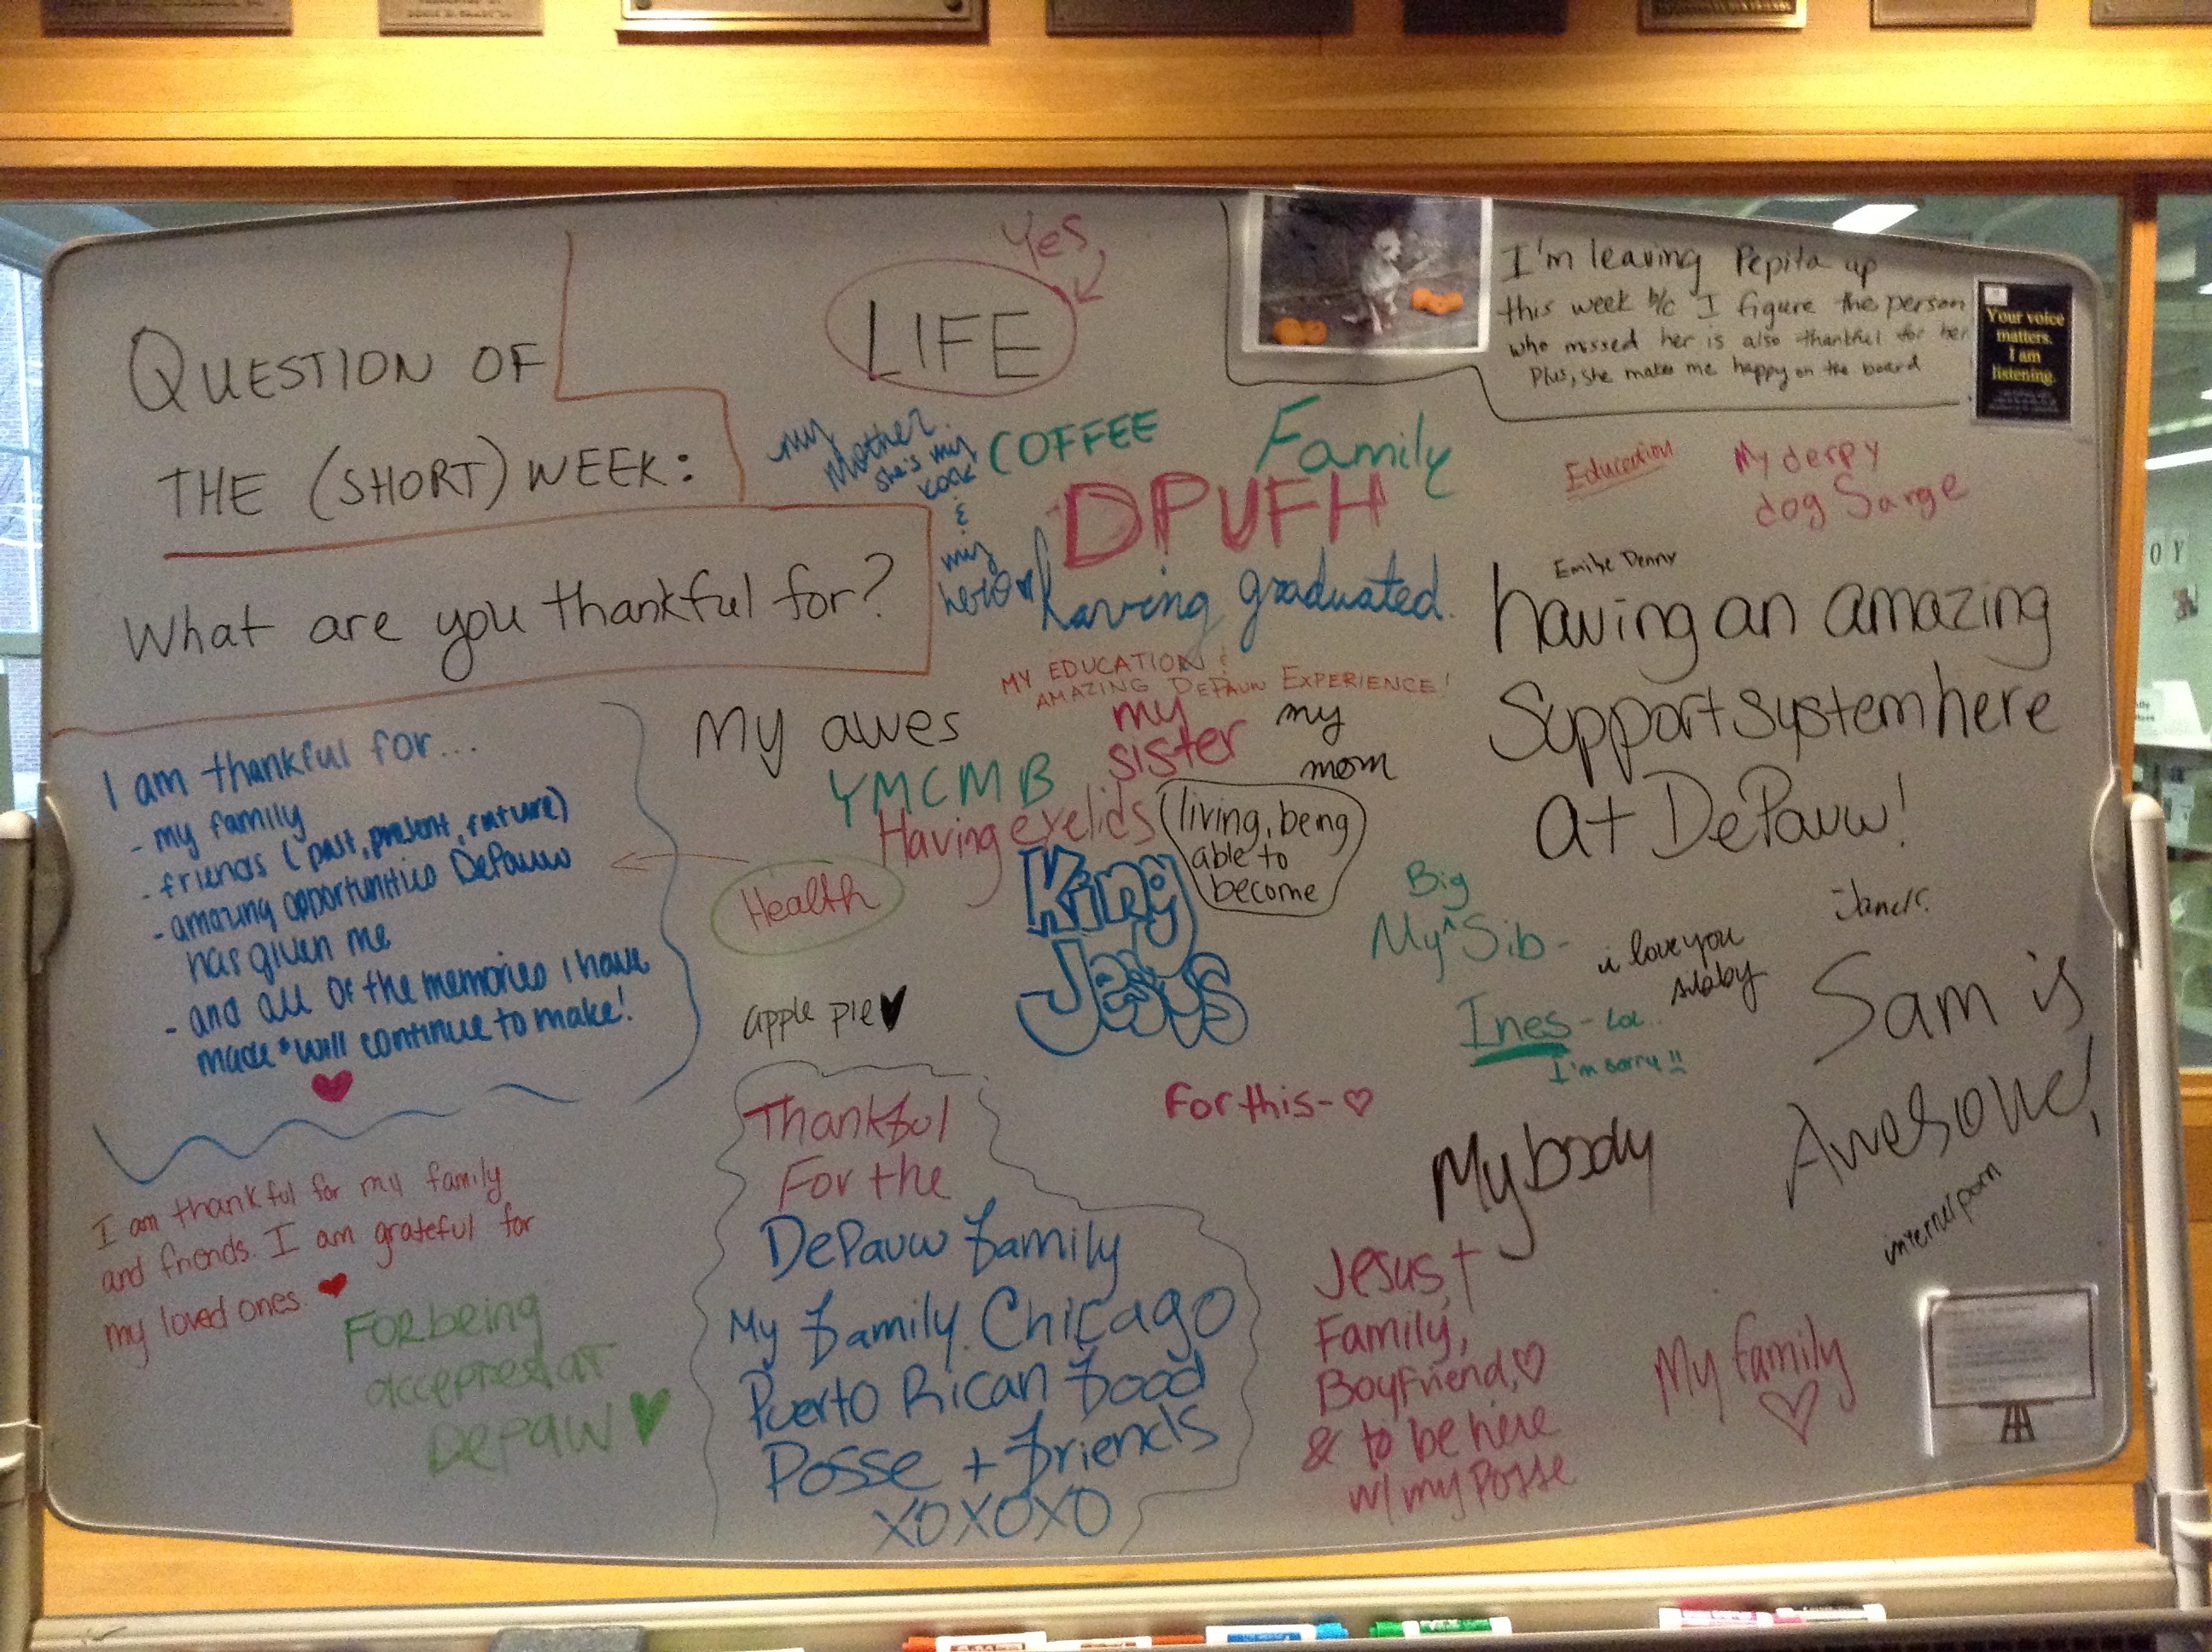 QUESTION OF
THE (SHORT) WEEK:
What are you thankful for?
Yes
LIFE
I'm leaving Pepita up
this week b/c I figure the person
who missed her is also thankful for her
Plus, she makes me happy on the board
Your voice
matters.
I am
listening.
my
Mother.
she's my
rock
&
my
hero
COFFEE
Family
DPUFH
having graduated.
Education
My derpy
dog Sarge
Emilie Denny
having an amazing
Support system here
at DePauw!
MY EDUCATION &
AMAZING DEPAUW EXPERIENCE!
my
sister
my
mom
My awes
YMCMB
Having eyelids
(living, being
able to
become
King
Jesus
Health
apple pie
I am thankful for...
- my family
- friends (past, present, future)
- amazing opportunities DePauw
has given me
- and all of the memories I have
made & will continue to make!
Big
My ^ Sib -
Ines - LOL..
I'm sorry!!
i love you
sibby
Sam is
Awesome!
internet porn
For this -
My body
I am thankful for my family
and friends. I am grateful for
my loved ones.
For being
accepted at
DePaw
Thankful
For the
DePauw family
My family. Chicago
Puerto Rican food
Posse + friends
XOXOXO
Jesus,
Family,
Boyfriend,
& to be here
w/ my Posse
My family